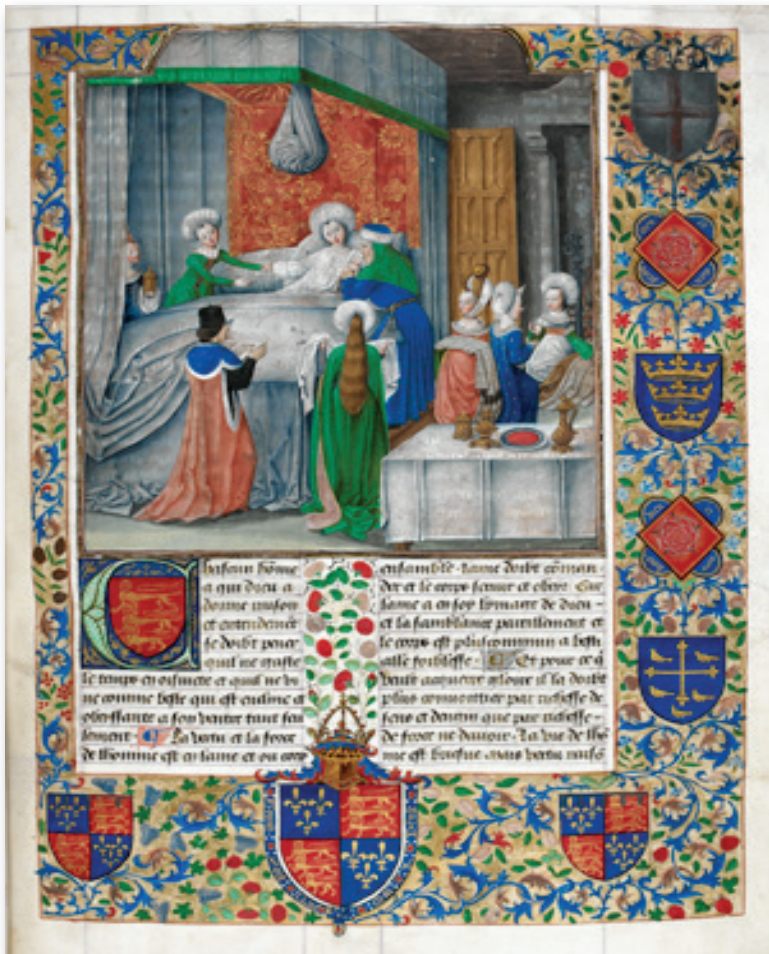 Chascun hõme
a qui dieu a
donne raison
et entendemẽt
se doibt pener
quil ne gaste
le temps en oisiuete et quil ne vi
ue comme beste qui est encline et
obeissante a son ventre tant seu
lement. La vertu et la force
de lhomme est en lame et ou corp
ensamble. lame doibt cõman
der et le corps seruir et obeir. Car
lame a en soy lymage de dieu
et la samblance pareillement et
le corps est plus commun a besti
alle foiblesse. Et pour ce q̃
veult acquerre gloire il la doibt
plus conuoittier par richesse de
sens et dengin que par richesse
de force ne dauoir. La vie de lhõ
me est briefue mais vertu